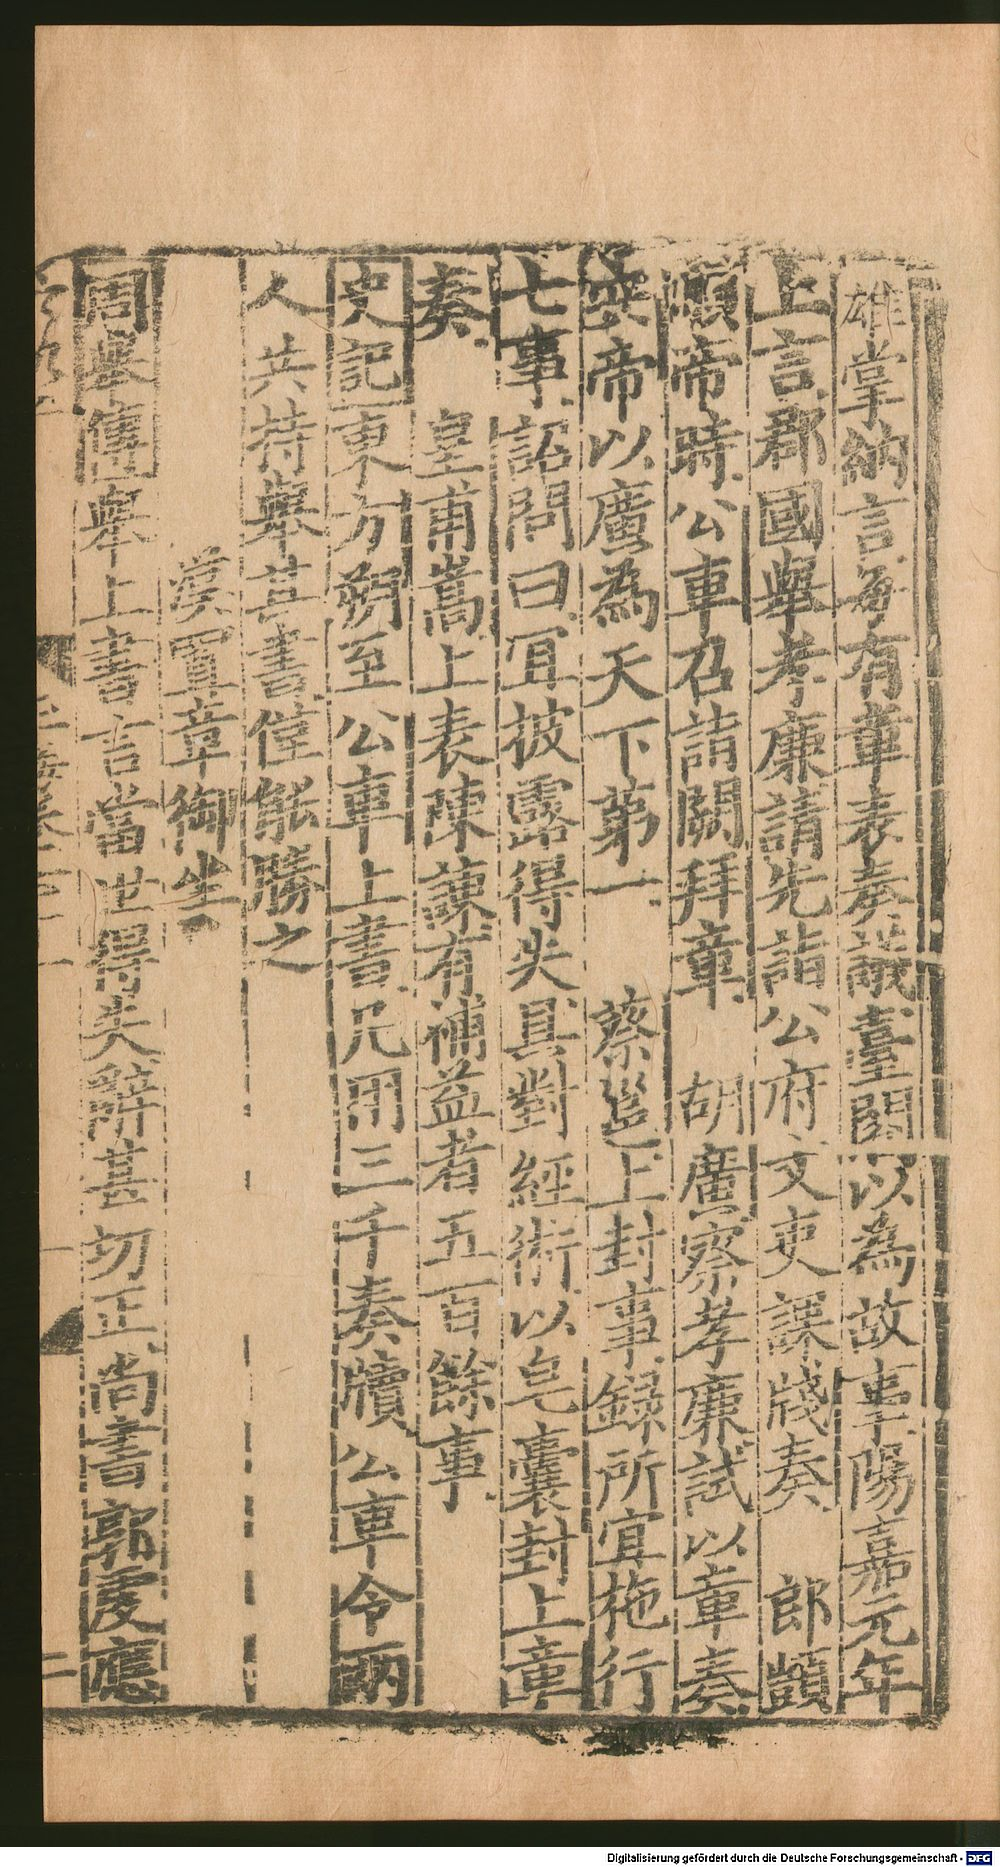 雄掌納言每有章表奏議臺閣以為故事陽嘉元年
上言郡國舉孝廉請先詣公府文吏課牋奏　郎顗
順帝時公車召請闕拜章　胡廣察孝廉試以章奏
安帝以廣為天下第一　蔡邕上封事錄所宜施行
七事詔問曰宜披露得失具對經術以皂囊封上章
奏　皇甫嵩上表陳諫有補益者五百餘事
史記東方朔至公車上書凡用三千奏牘公車令兩
人共持舉其書僅能勝之
漢置章御坐
周舉傳舉上書言當世得失辭甚切正尚書郭虔應
二
Digitalisierung gefördert durch die Deutsche Forschungsgemeinschaft - DFG